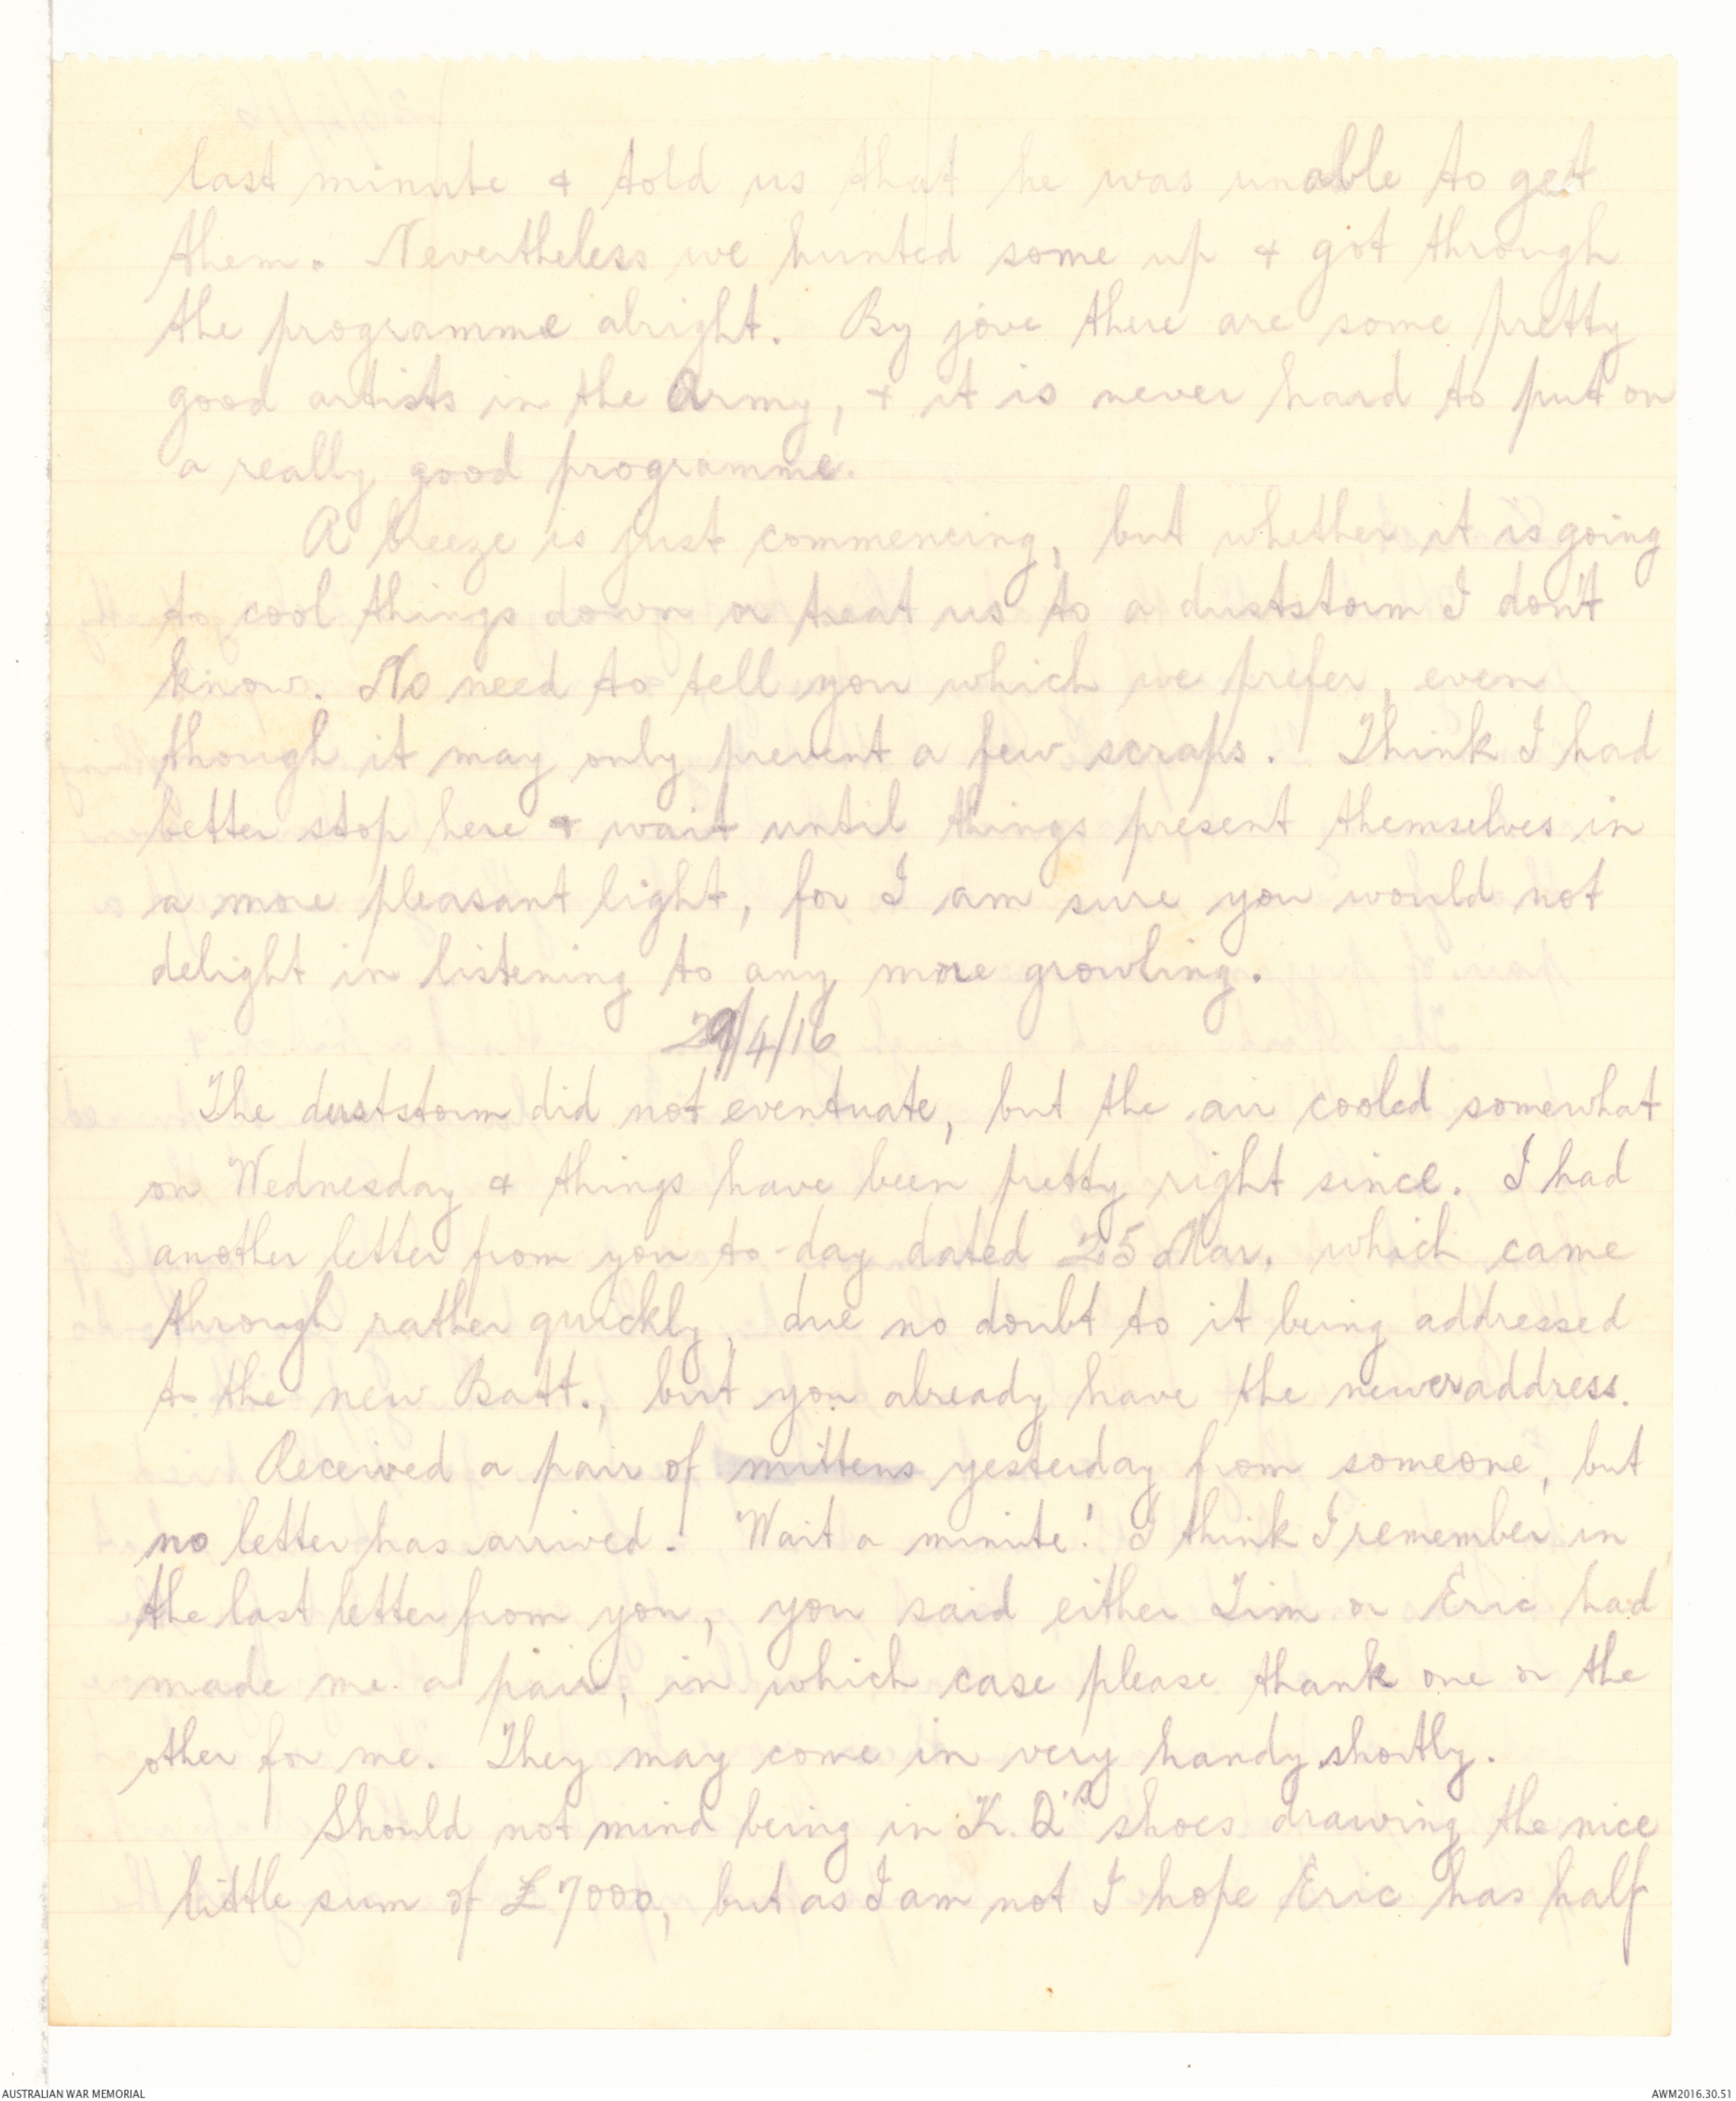 last minute & told us that he was unable to get
them. Nevertheless we hunted some up & got through
the programme alright. By jove there are some pretty
good artists in the Army, & it is never hard to put on
a really good programme.
A breeze is just commencing, but whether it is going
to cool things down or treat us to a duststorm I don't
know. No need to tell you which we prefer, even
though it may only prevent a few scraps. Think I had
better stop here & wait until things present themselves in
a more pleasant light, for I am sure you would not
delight in listening to any more growling.
29/4/16
The duststorm did not eventuate, but the air cooled somewhat
on Wednesday & things have been pretty right since. I had
another letter from you to-day dated 25 Mar. which came
through rather quickly, due no doubt to it being addressed
to the new Batt., but you already have the newer address.
Received a pair of mittens yesterday from someone, but
no letter has arrived. Wait a minute! I think I remember in
the last letter from you, you said either Tim or Eric had
made me a pair, in which case please thank one or the
other for me. They may come in very handy shortly.
Should not mind being in K. Q's shoes drawing the nice
little sum of £7000, but as I am not I hope Eric has half
AUSTRALIAN WAR MEMORIAL
AWM2016.30.51